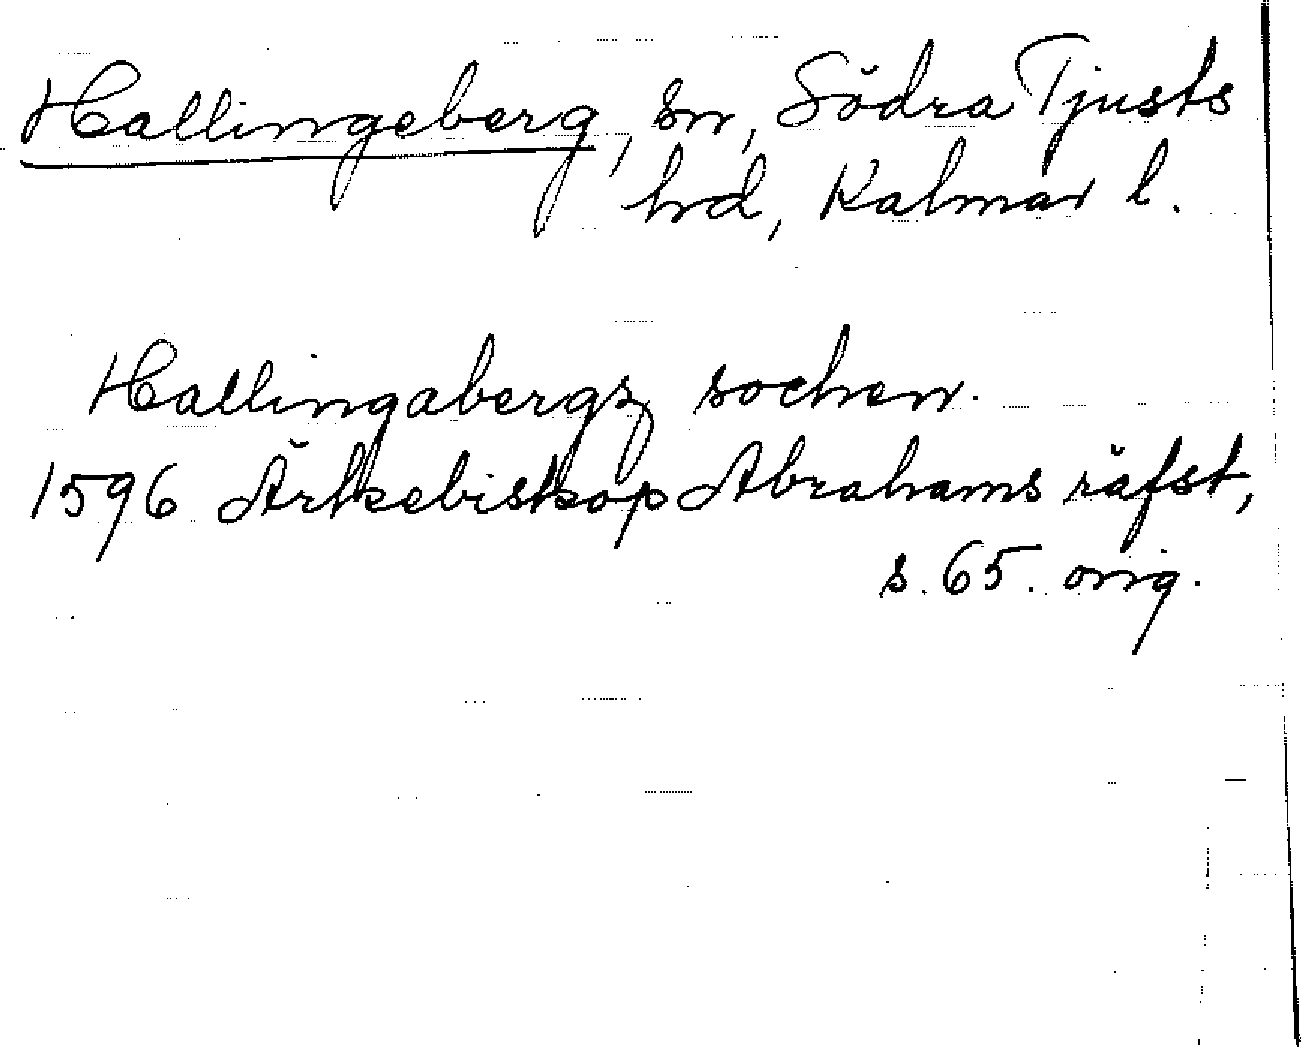 Hallingeberg, sn, Södra Tjusts
hd, Kalmar l.
Hallingabergz sochen.
1596 Ärkebiskop Abrahams räfst,
s. 65. orig.